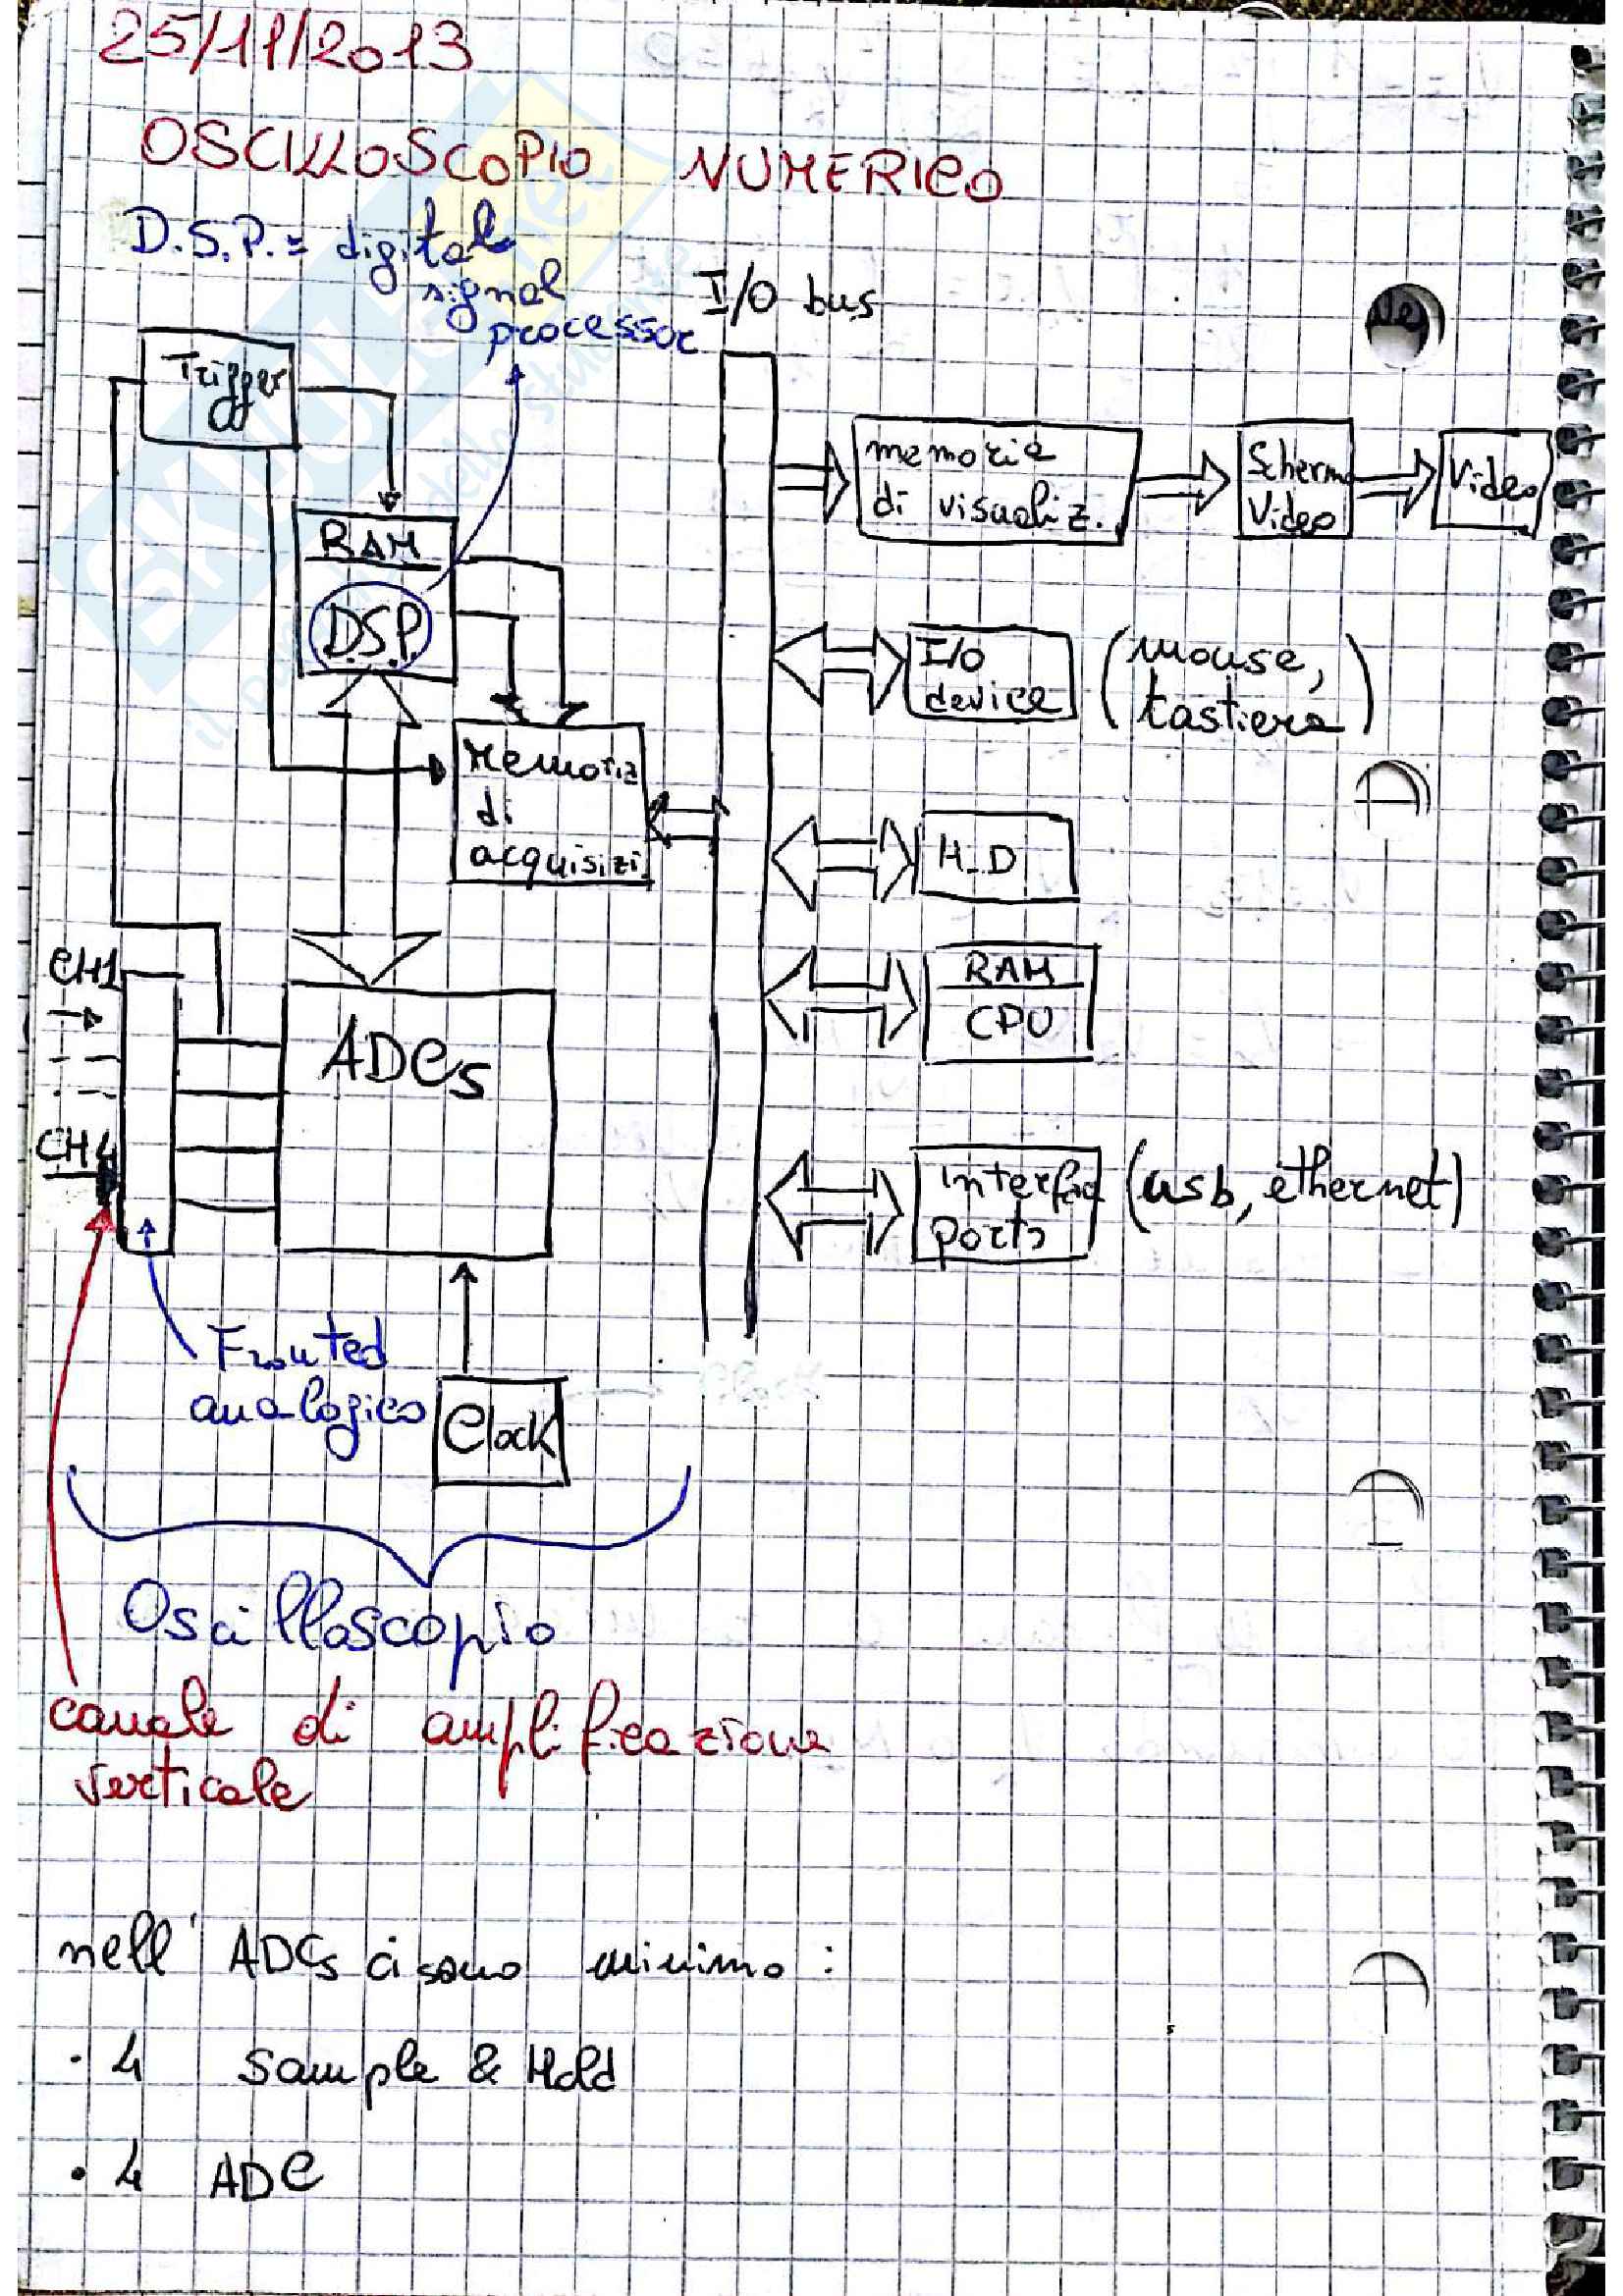 25/11/2013
OSCILLOSCOPIO NUMERICO
D.S.P. = digital
signal
processor
I/O bus
Trigger
RAM
D.S.P.
memoria
di visualiz.
Schermo
Video
Video
I/O
device
(mouse,
tastiera)
Memoria
di
acquisizi.
H_D
RAM
CPU
CH1
ADCs
CH4
interfac
ports
(usb, ethernet)
Fronted
analogico
Clock
Oscilloscopio
canale di amplificazione
verticale
nell' ADCs ci sono minimo :
· 4 Sample & Hold
· 4 ADC
SKUOLA.net